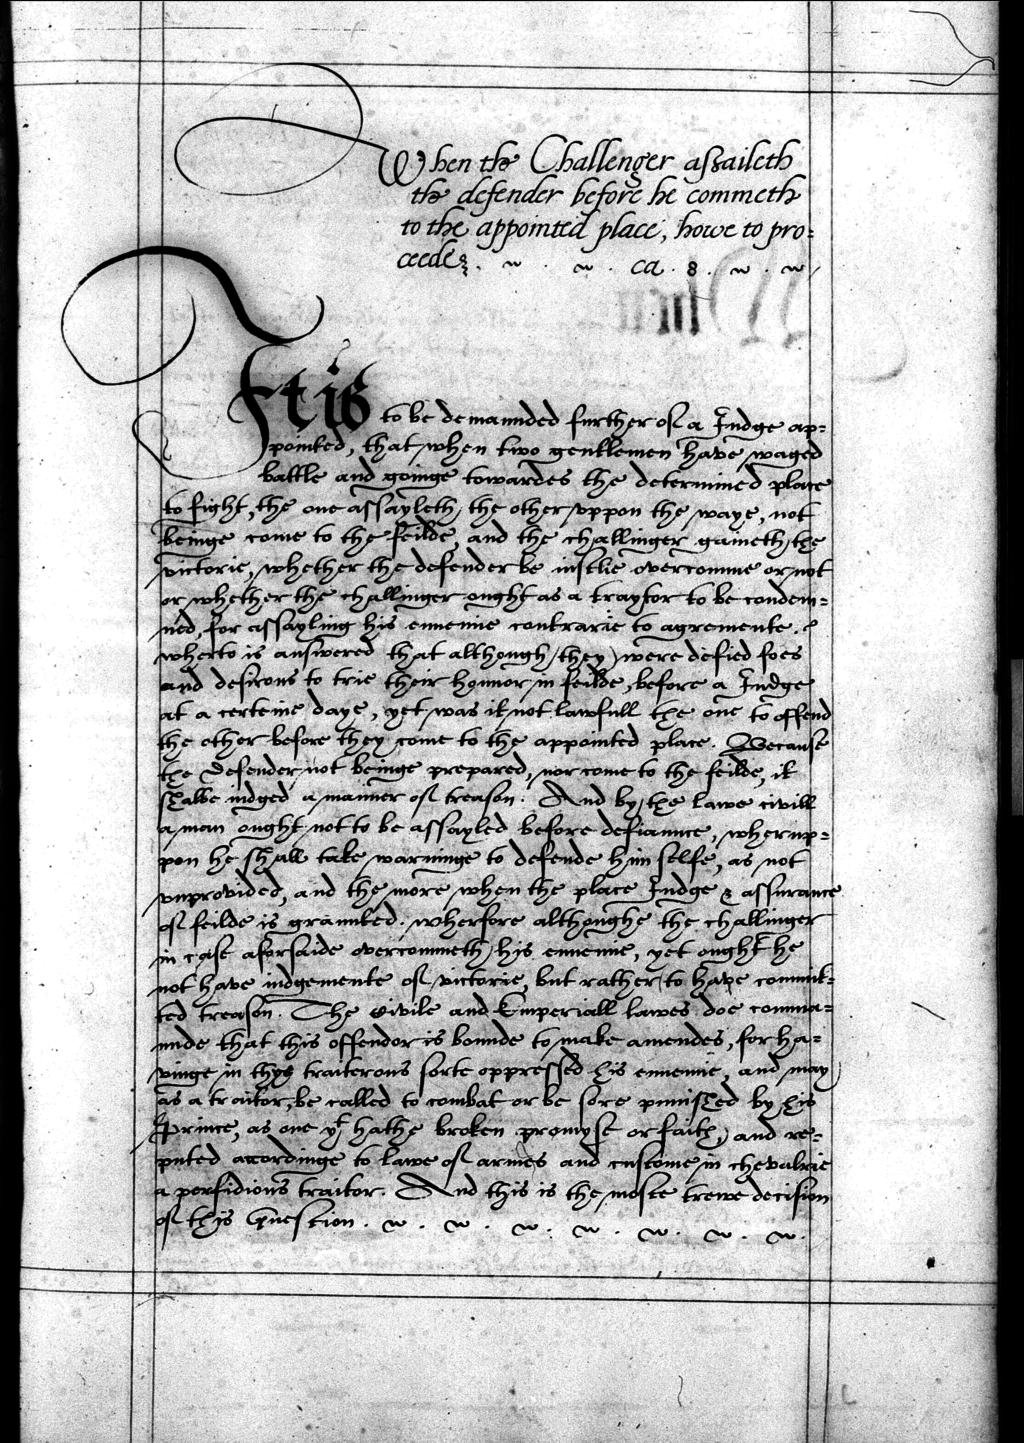 When the Challenger assaileth
the defender before he commeth
to the appointed place, howe to pro=
ceede. ca. 8.
It is to be demaunded further of a Judge ap=
pointed, that when two gentlemen have waged
battle and goinge towardes the determined place
to fight, the one assayleth the other uppon the waye, not
beinge come to the feilde, and the challinger gaineth the
victorie, whether the defender be iustlie overcomme or not
or whether the challinger ought as a traytor to be condem=
ned, for assayling his ennemie contrarie to agremente.
wherto is answered that although they were defied foes
and desirous to trie their honnor in feilde, before a Judge
at a certeine daye, yet was it not lawfull the one to offend
the other before they come to the appointed place. Because
the Defender not beinge prepared, nor come to the feilde, it
shalbe iudged a manner of treason. And by the lawe civill
a man ought not to be assayled before defiaunce, wherup=
pon he shall take warninge to defende him selfe, as not
unprovided, and the more when the place Judge & assurance
of feilde is graunted. wherfore althoughe the challinger
in case aforsaide overcommeth his ennemie, yet ought he
not have iudgemente of victorie, but rather to have commit=
ted treason. The Civile and Emperiall lawes doe comma=
unde that this offendor is bounde to make amendes, for ha=
vinge in thys traiterous sorte oppressed his ennemie, and may
as a traitor, be called to combat or be sore punished by his
Prince, as one yt hathe broken promyse or faith, and re=
puted accordinge to lawe of armes and custome in chevalrie
a perfidious traitor. And this is the moste trewe decision
of this Question.
When